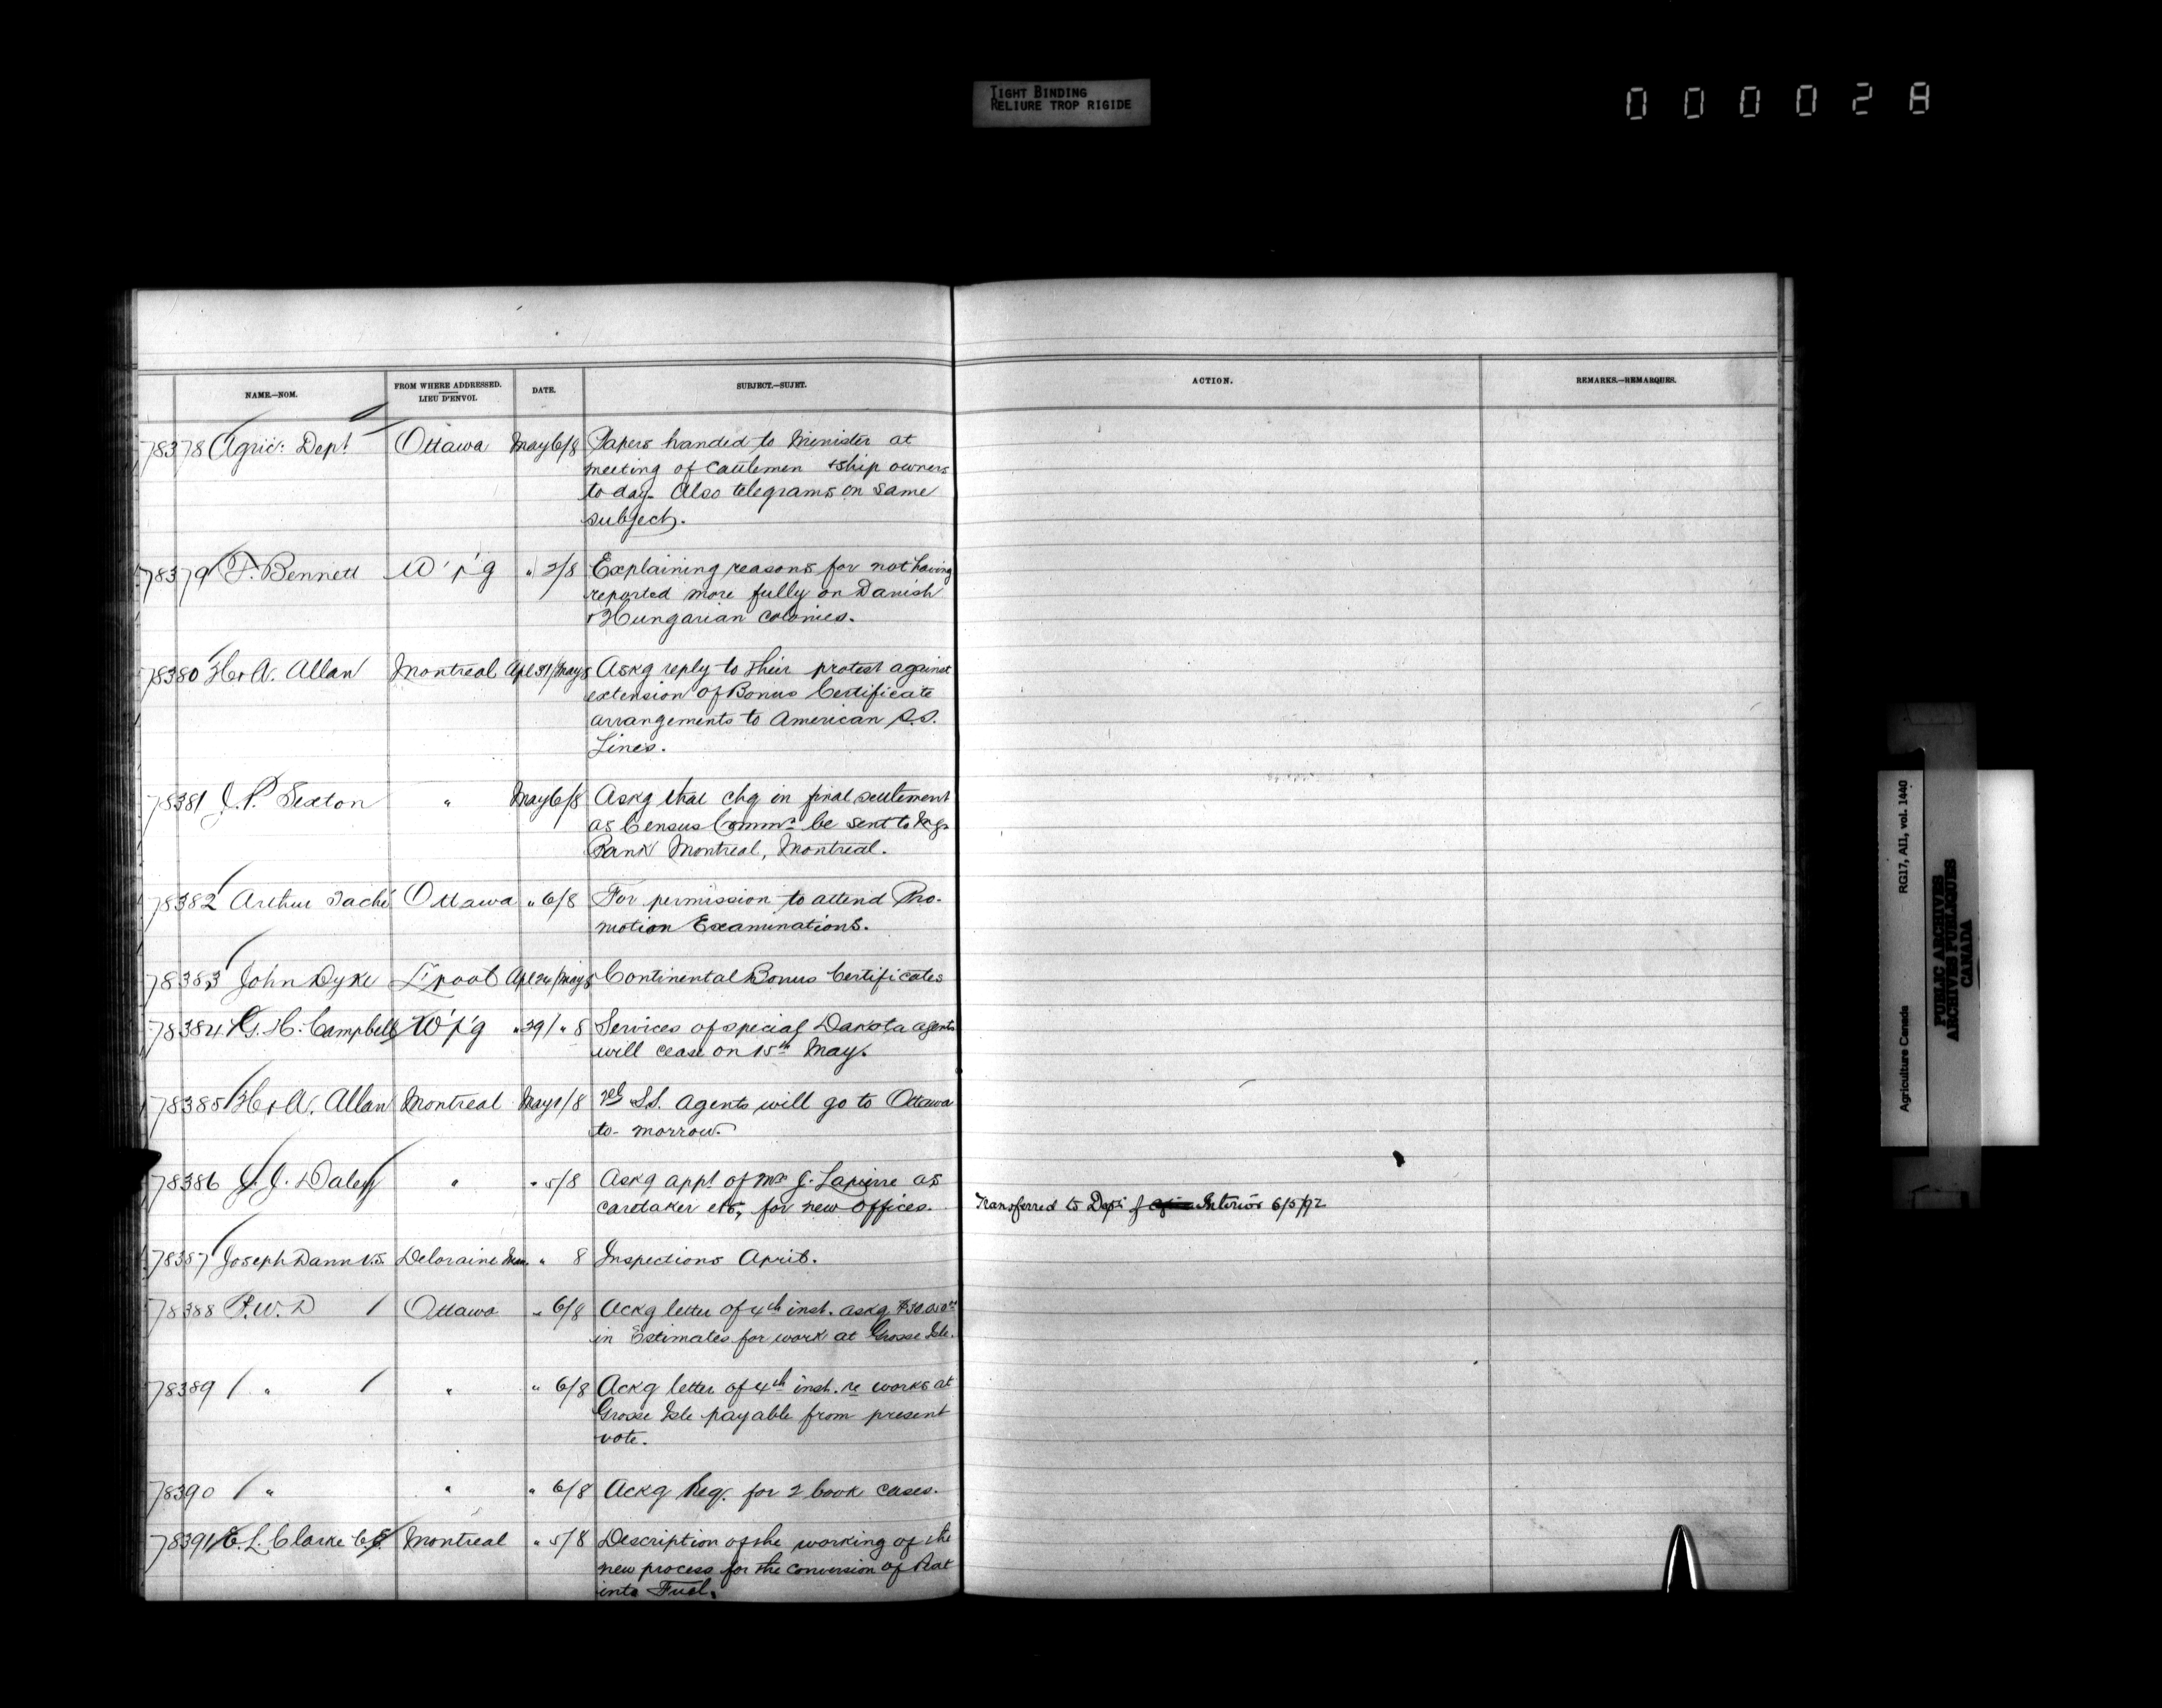 TIGHT BINDING
RELIURE TROP RIGIDE
000028
NAME.—NOM.
FROM WHERE ADDRESSED.
LIEU D'ENVOI.
DATE.
SUBJECT.—SUJET.
ACTION.
REMARKS.—REMARQUES.
78378 Agric: Dept Ottawa May 6/8 Papers handed to Minister at
meeting of Cattlemen & ship owners
to day. Also telegrams on same
subject.
78379 Bennett W'p'g " 2/8 Explaining reasons for not having
reported more fully on Danish
& Hungarian colonies.
78380 H & A. Allan Montreal Apl /May 8 Askg reply to their protest against
extension of Bonus Certificate
arrangements to American S.S.
Lines.
78381 J. P. Sexton " May 6/8 Askg that chq in final settlement
as Census Commr be sent to
Bank Montreal, Montreal.
78382 Arthur Taché Ottawa " 6/8 For permission to attend Pro-
motion Examinations.
78383 John Dyke L'pool Apl 26/May 8 Continental Bonus Certificates
78384 H. Campbell W'p'g " 29/ " 8 Services of special Dakota agents
will cease on 15th May.
78385 H & A. Allan Montreal May /8 S.S. agents will go to Ottawa
to-morrow.
78386 J. J. Daley " " 5/8 Askg appt of J. Lapierre as
caretaker etc, for new offices.
Transferred to Dept of Interior 6/5/92
78387 Joseph Dann V.S. Deloraine Man. " 8 Inspections April.
78388 P.W.D Ottawa " 6/8 Ackg letter of 4th inst. askg
in Estimates for work at Grosse Isle.
78389 " " " 6/8 Ackg letter of 4th inst. re works at
Grosse Isle payable from present
vote.
78390 " " " 6/8 Ackg Req. for 2 book cases.
78391 L. Clarke C.E. Montreal " 5/8 Description of the working of the
new process for the conversion of Peat
into Fuel.
Agriculture Canada RG17, AII, vol. 1440
PUBLIC ARCHIVES
ARCHIVES PUBLIQUES
CANADA